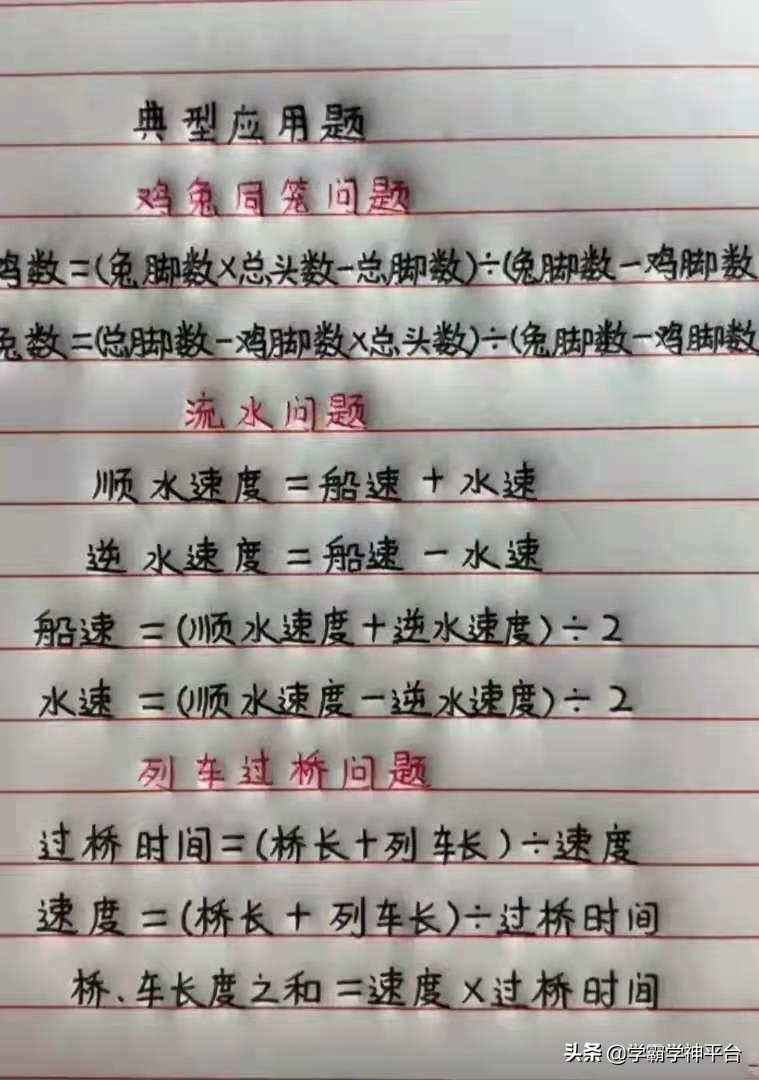 典型应用题
鸡兔同笼问题
鸡数=(兔脚数×总头数-总脚数)÷(兔脚数-鸡脚数
兔数=(总脚数-鸡脚数×总头数)÷(兔脚数-鸡脚数
流水问题
顺水速度=船速+水速
逆水速度=船速-水速
船速=(顺水速度+逆水速度)÷2
水速=(顺水速度-逆水速度)÷2
列车过桥问题
过桥时间=(桥长+列车长)÷速度
速度=(桥长+列车长)÷过桥时间
桥、车长度之和=速度×过桥时间
头条 @学霸学神平台